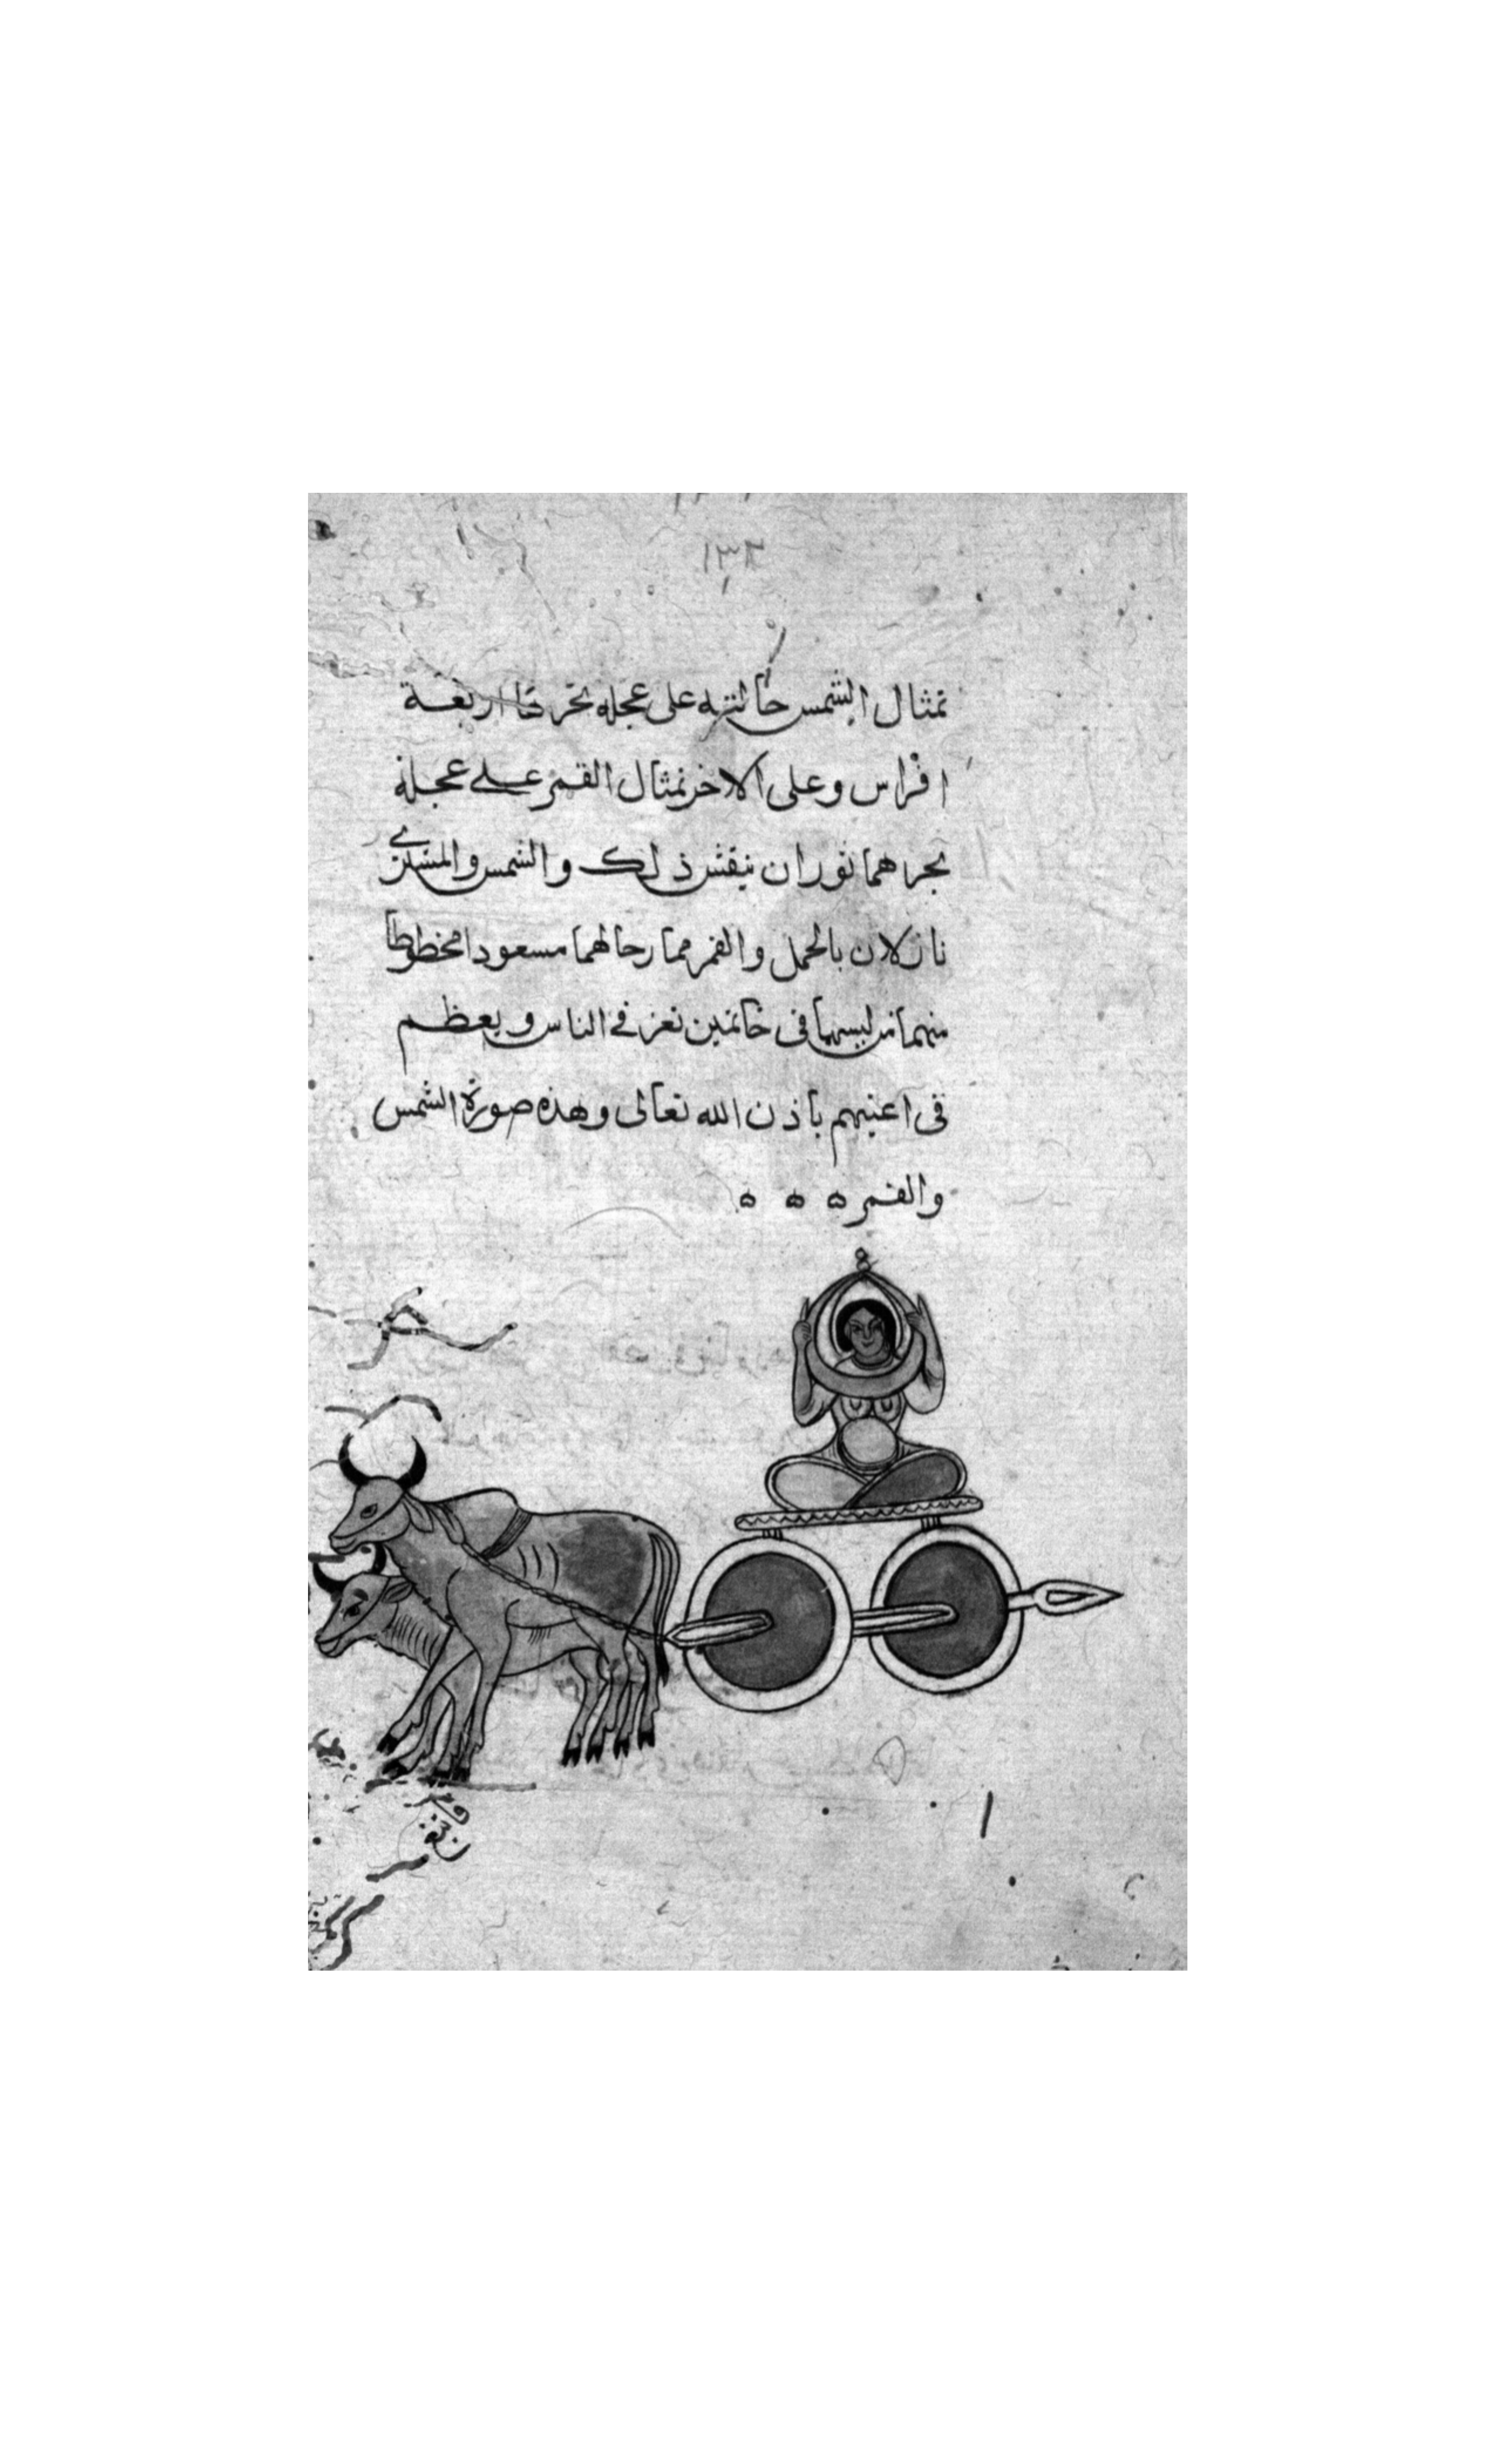 ١٣٢
تمثال الشمس جالسه على عجله تجرها اربعة
افراس وعلى الاخر تمثال القمر على عجلة
يجرهما ثوران ينقش ذلك والشمس والمشترى
نازلان بالحمل والقمر ممازجا لهما مسعودا محظوظا
منهما من لبسهما فى خاتمين تعزز فى الناس ويعظم
فى اعينهم باذن الله تعالى وهذه صورة الشمس
والقمر ه ه ه